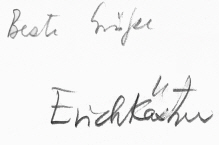 Beste Grüße
Erich Kästner